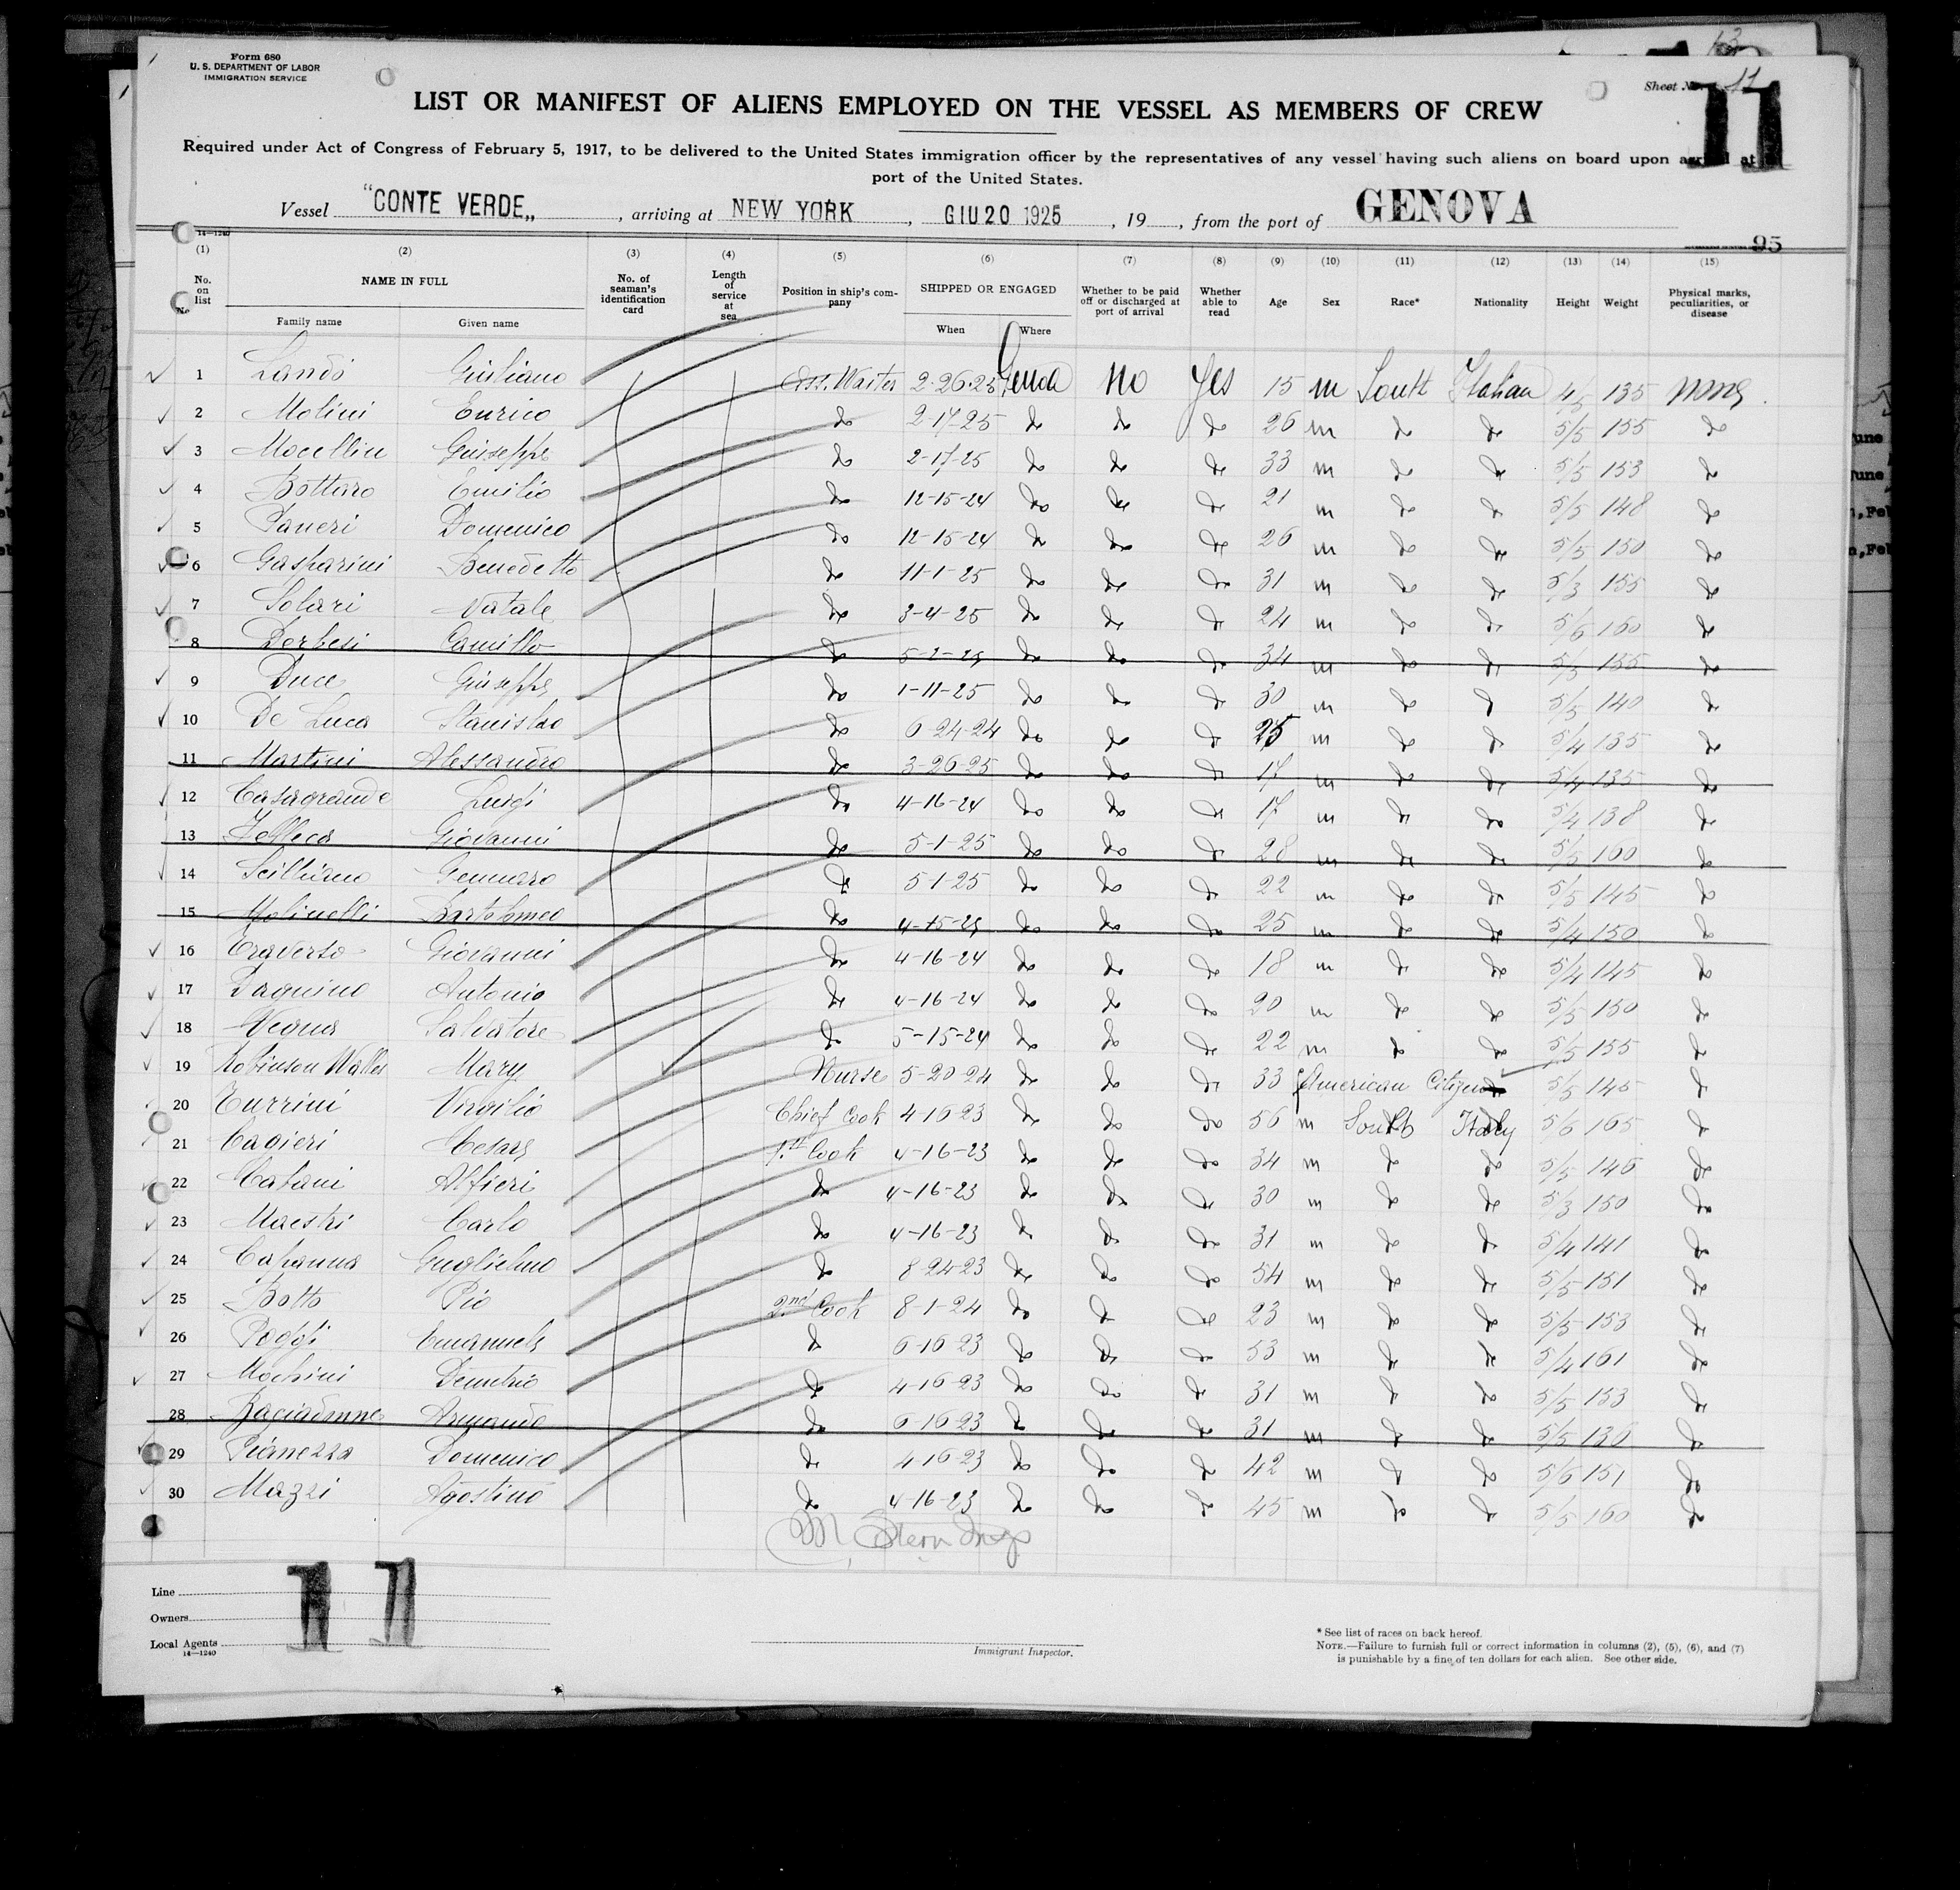 Form 680
U. S. DEPARTMENT OF LABOR
IMMIGRATION SERVICE
Sheet No. 11
11
LIST OR MANIFEST OF ALIENS EMPLOYED ON THE VESSEL AS MEMBERS OF CREW
Required under Act of Congress of February 5, 1917, to be delivered to the United States immigration officer by the representatives of any vessel having such aliens on board upon arrival at
port of the United States.
Vessel "CONTE VERDE„ , arriving at NEW YORK , GIU 20 1925 , 19 , from the port of GENOVA
14—1240
95
(1) (2) (3) (4) (5) (6) (7) (8) (9) (10) (11) (12) (13) (14) (15)
No. on list NAME IN FULL No. of seaman's identification card Length of service at sea Position in ship's company SHIPPED OR ENGAGED Whether to be paid off or discharged at port of arrival Whether able to read Age Sex Race* Nationality Height Weight Physical marks, peculiarities, or disease
Family name Given name When Where
1 Landi Giuliano Ass. Waiter 2-26-25 Genoa No Yes 15 m South Italian 4/5 135 none
2 Molini Enrico do 2-17-25 do do do 26 m do do 5/5 155 do
3 Mocellin Giuseppe do 2-17-25 do do do 33 m do do 5/5 153 do
4 Bottaro Emilio do 12-15-24 do do do 21 m do do 5/5 148 do
5 Paneri Domenico do 12-15-24 do do do 26 m do do 5/5 150 do
6 Gasparini Benedetto do 11-1-25 do do do 31 m do do 5/3 155 do
7 Solari Natale do 3-4-25 do do do 24 m do do 5/6 160 do
8 Camillo do do do do 34 m do do 155 do
9 Duce Giuseppe do 1-11-25 do do do 30 m do do 5/5 140 do
10 De Luca Stanislao do 6-24-24 do do do 25 m do do 5/4 135 do
11 Martini Alessandro do 3-26-25 do do do 17 m do do 5/4 135 do
12 Casagrande Luigi do 4-16-24 do do do 17 m do do 5/4 138 do
13 Giovanni do 5-1-25 do do do 28 m do do 5/5 do
14 Gennaro do 5-1-25 do do do 22 m do do 5/5 145 do
15 Molinelli Bartolomeo do do do do 25 m do do 5/4 150 do
16 Traverso Giovanni do 4-16-24 do do do 18 m do do 5/4 145 do
17 Daquino Antonio do 4-16-24 do do do 20 m do do 5/5 150 do
18 Salvatore do 5-15-24 do do do 22 m do do 5/5 155 do
19 Robinson Mary Nurse 5-20-24 do do do 33 f American Citizen 5/5 145 do
20 Turrini Virgilio Chief Cook 4-16-23 do do do 56 m South Italy 5/6 165 do
21 Cagieri Cesare 1st Cook 4-16-23 do do do 34 m do do 5/5 145 do
22 Catani Alfieri do 4-16-23 do do do 30 m do do 5/3 150 do
23 Maestri Carlo do 4-16-23 do do do 31 m do do 5/4 141 do
24 Capanna Guglielmo do 8-24-23 do do do 54 m do do 5/5 151 do
25 Botto Pio 2nd Cook 8-1-24 do do do 23 m do do 5/5 153 do
26 Poggi Emanuele do 6-16-23 do do do 53 m do do 5/4 161 do
27 Mochini Demetrio do 4-16-23 do do do 31 m do do 5/5 153 do
28 Armando do 6-16-23 do do do 31 m do do 5/5 136 do
29 Pianezza Domenico do 4-16-23 do do do 42 m do do 5/6 151 do
30 Mazzi Agostino do 4-16-23 do do do 45 m do do 5/5 160 do
Line
Owners
Local Agents
14—1240
11
Immigrant Inspector.
* See list of races on back hereof.
NOTE.—Failure to furnish full or correct information in columns (2), (5), (6), and (7)
is punishable by a fine of ten dollars for each alien. See other side.